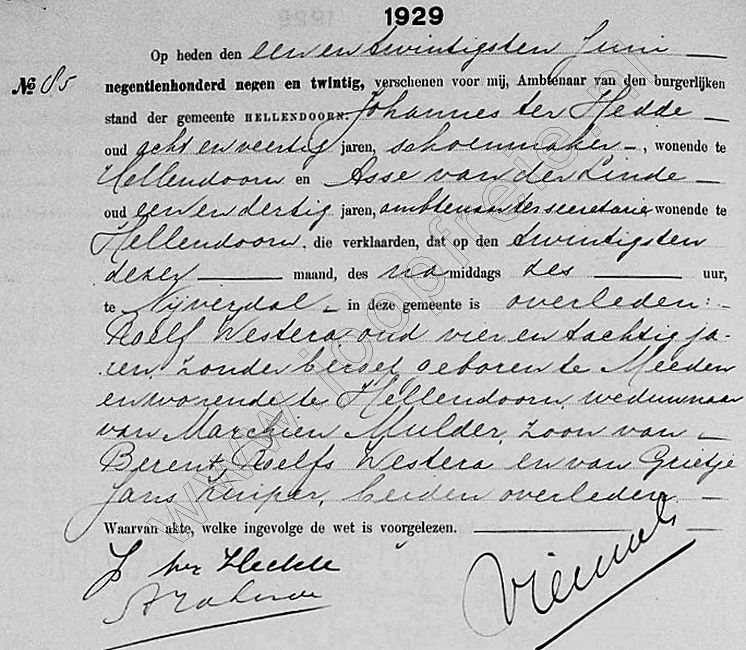 1929
Op heden den een en twintigsten Juni
No 85 negentienhonderd negen en twintig, verschenen voor mij, Ambtenaar van den burgerlijken
stand der gemeente HELLENDOORN: Johannes ter Hedde
oud acht en veertig jaren, schoenmaker, wonende te
Hellendoorn en Asse van der Linde
oud een en dertig jaren, ambtenaar ter secretarie wonende te
Hellendoorn, die verklaarden, dat op den twintigsten
dezer maand, des na middags zes uur,
te Nijverdal in deze gemeente is overleden:
Roelf Westera oud vier en tachtig ja-
ren, zonder beroep, geboren te Meeden
en wonende te Hellendoorn, weduwnaar
van Marchien Mulder, zoon van
Berent Roelfs Westera en van Grietje
Jans Kuiper, beiden overleden.
Waarvan akte, welke ingevolge de wet is voorgelezen.
J ter Hedde